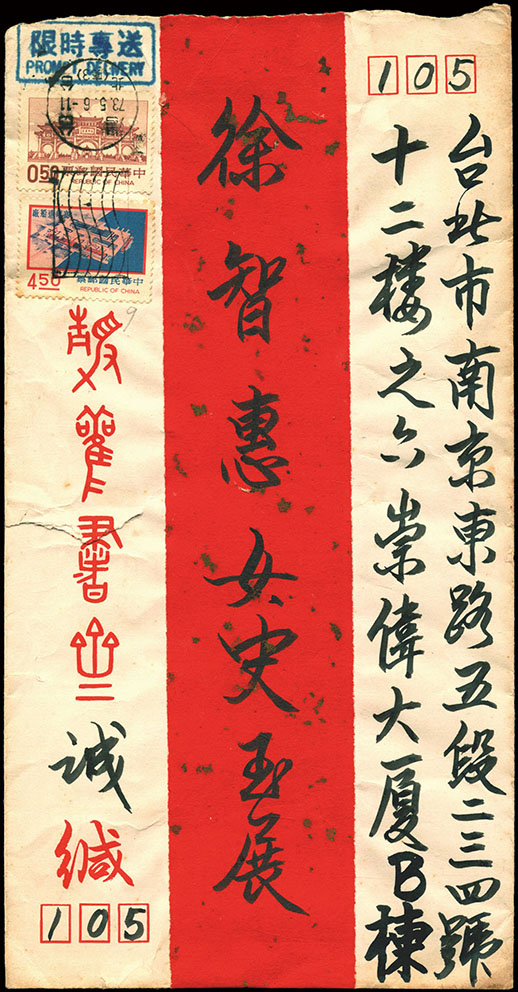 105
台北市南京東路五段二三四號
十二樓之六崇偉大厦B棟
徐智惠女史玉展
限時專送
PROMPT DELIVERY
73.5.6.-11
中華民國郵票
REPUBLIC OF CHINA
050
中華民國郵票
REPUBLIC OF CHINA
450
9
誠
緘
105